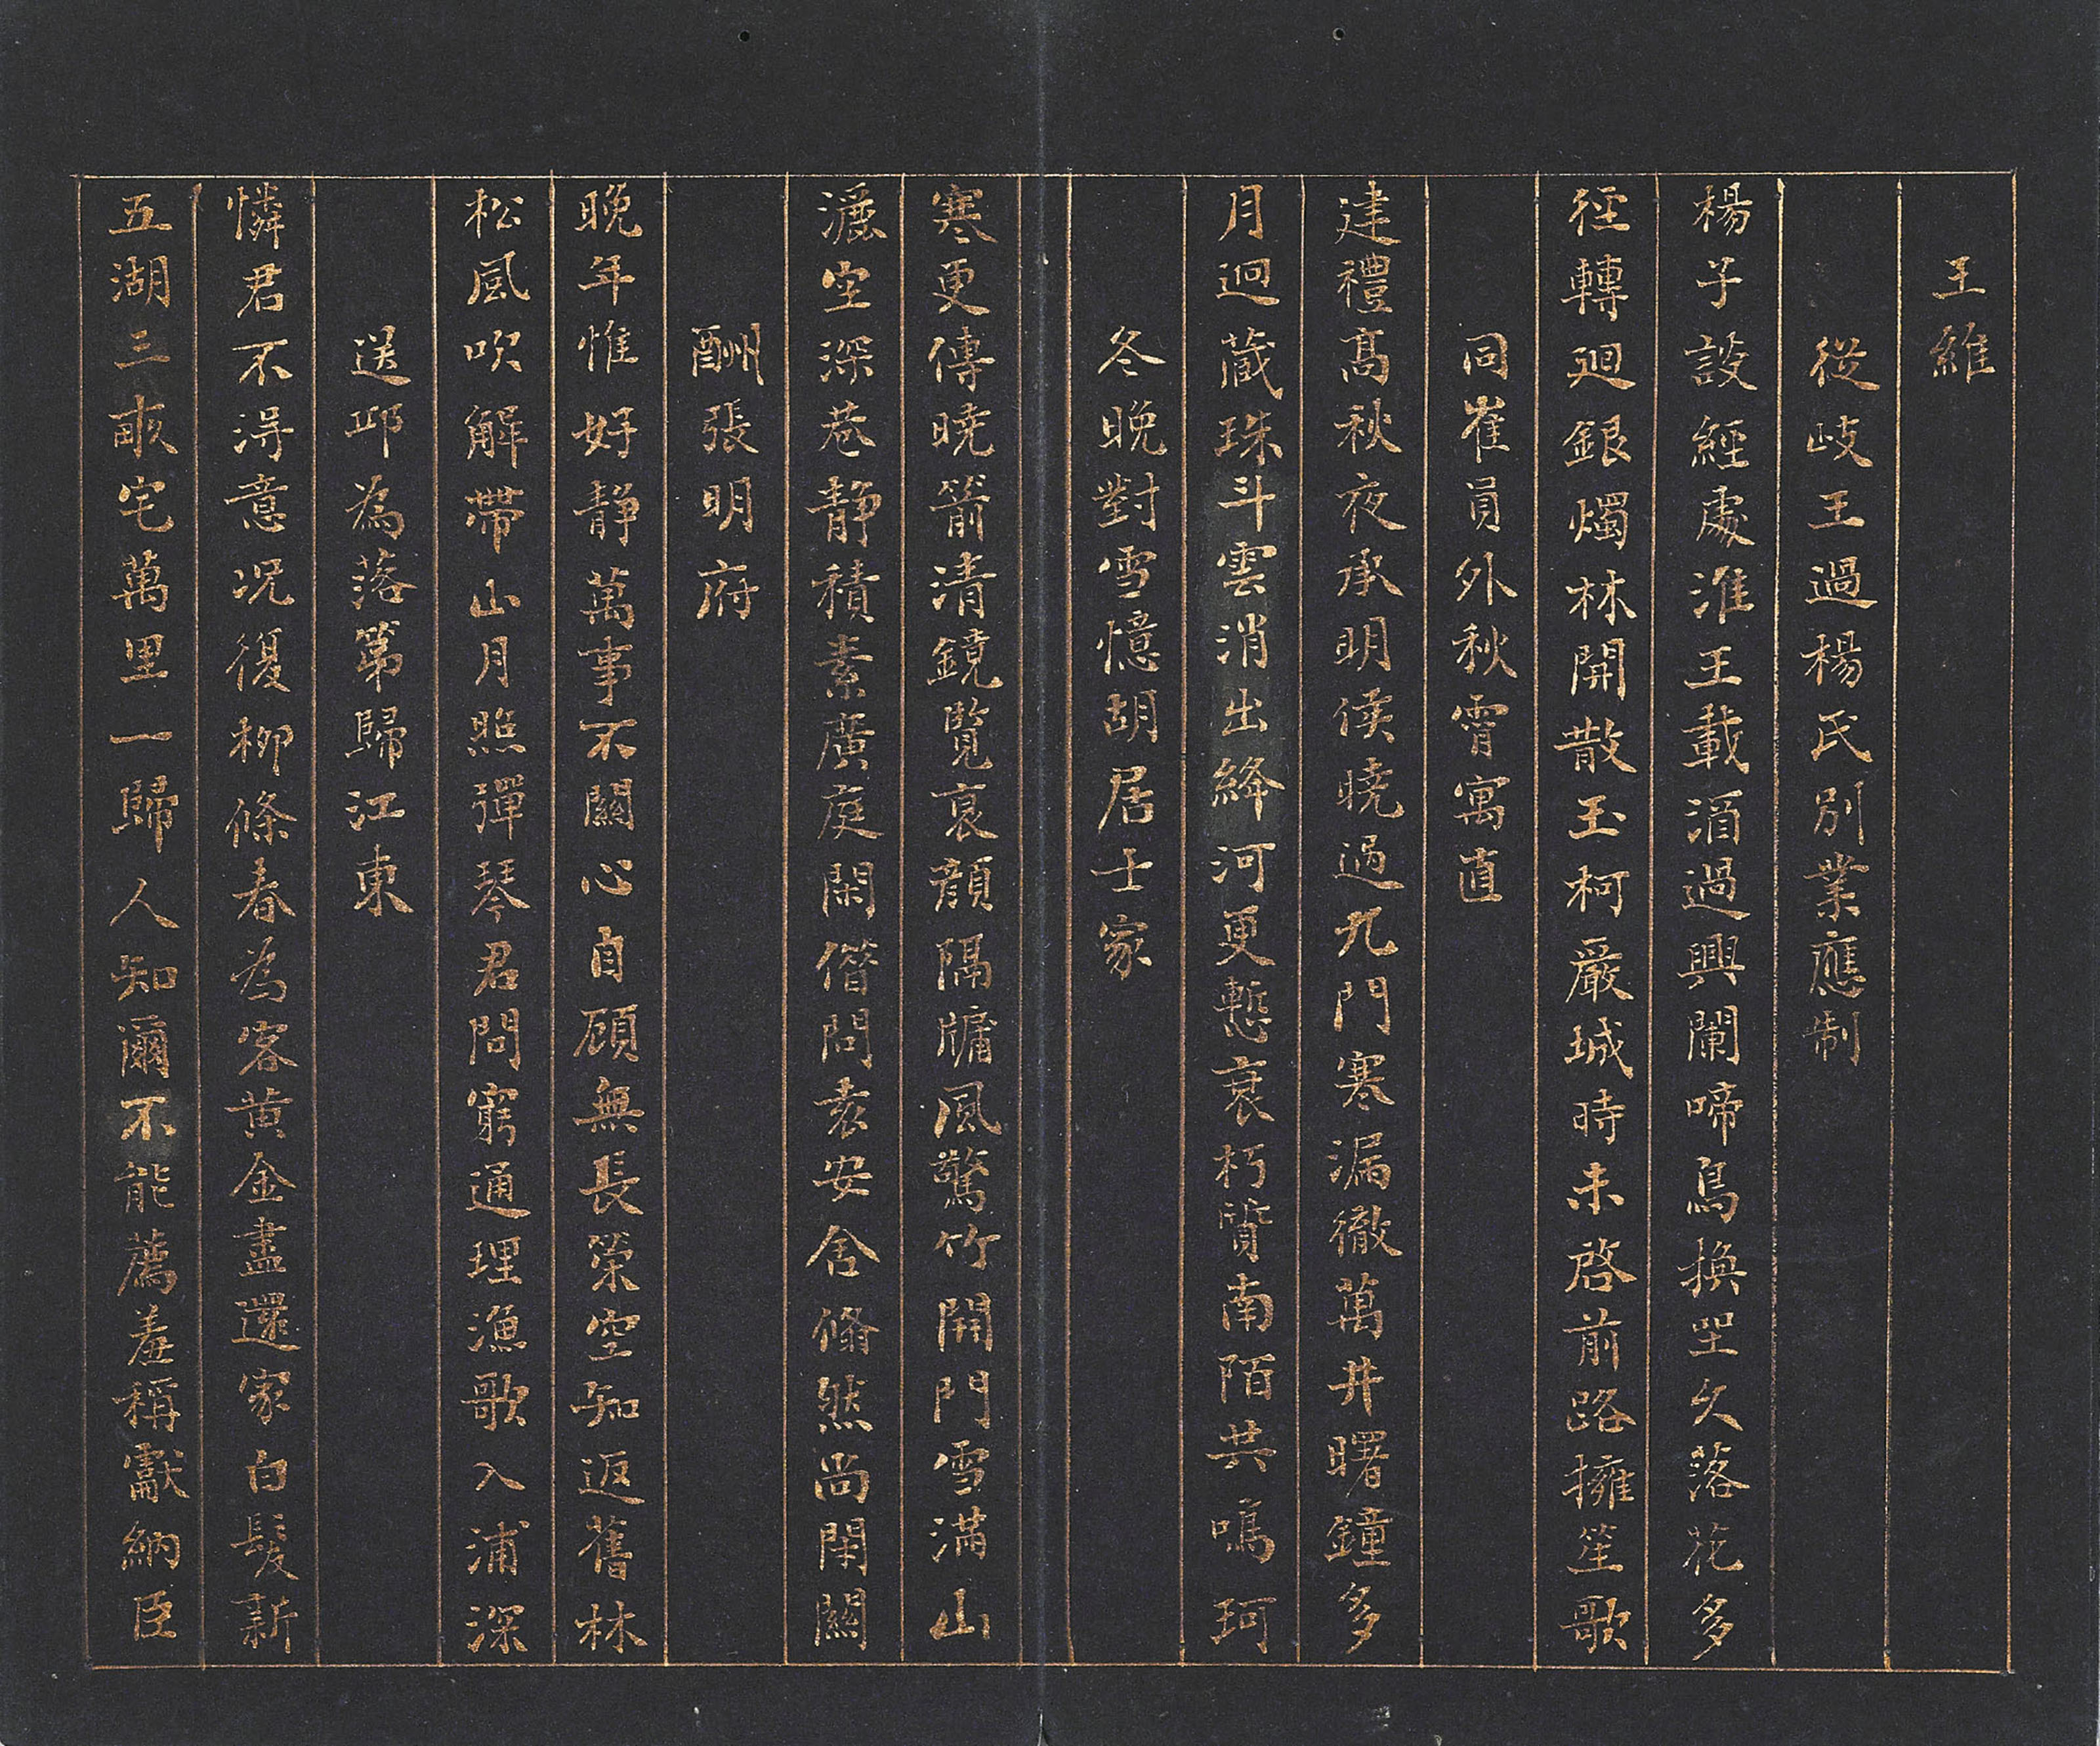 王維
從岐王過楊氏別業應制
楊子設經處淮王載酒過興闌啼鳥換坐久落花多
徑轉迴銀燭林開散玉柯嚴城時未啓前路擁笙歌
同崔員外秋宵寓直
建禮高秋夜承明候曉過九門寒漏徹萬井曙鐘多
月迥藏珠斗雲消出絳河更慙衰朽質南陌共鳴珂
冬晚對雪憶胡居士家
寒更傳曉箭清鏡覽衰顏隔牖風驚竹開門雪滿山
灑空深巷靜積素廣庭閑借問袁安舍翛然尚閉關
酬張明府
晚年惟好靜萬事不關心自顧無長策空知返舊林
松風吹解帶山月照彈琴君問窮通理漁歌入浦深
送邱為落第歸江東
憐君不得意況復柳條春為客黃金盡還家白髮新
五湖三畝宅萬里一歸人知爾不能薦羞稱獻納臣